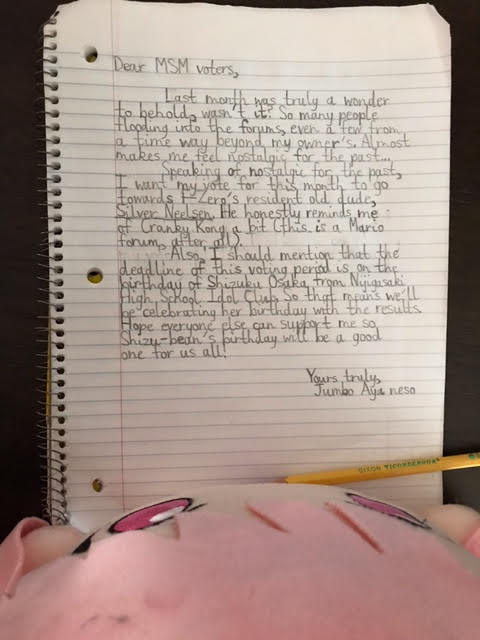 Dear MSM voters,
Last month was truly a wonder
to behold, wasn't it? So many people
flooding into the forums, even a few from
a time way beyond my owner's. Almost
makes me feel nostalgic for the past...
Speaking of nostalgic for the past,
I want my vote for this month to go
towards F-Zero's resident old dude,
Silver Neelsen. He honestly reminds me
of Cranky Kong a bit (this is a Mario
forum, after all).
Also, I should mention that the
deadline of this voting period is on the
birthday of Shizuku Osaka from Nijigasaki
High School Idol Club. So that means we'll
be celebrating her birthday with the results.
Hope everyone else can support me so
Shizu-bean's birthday will be a good
one for us all!
Yours truly,
Jumbo Aya neso
DIXON TICONDEROGA